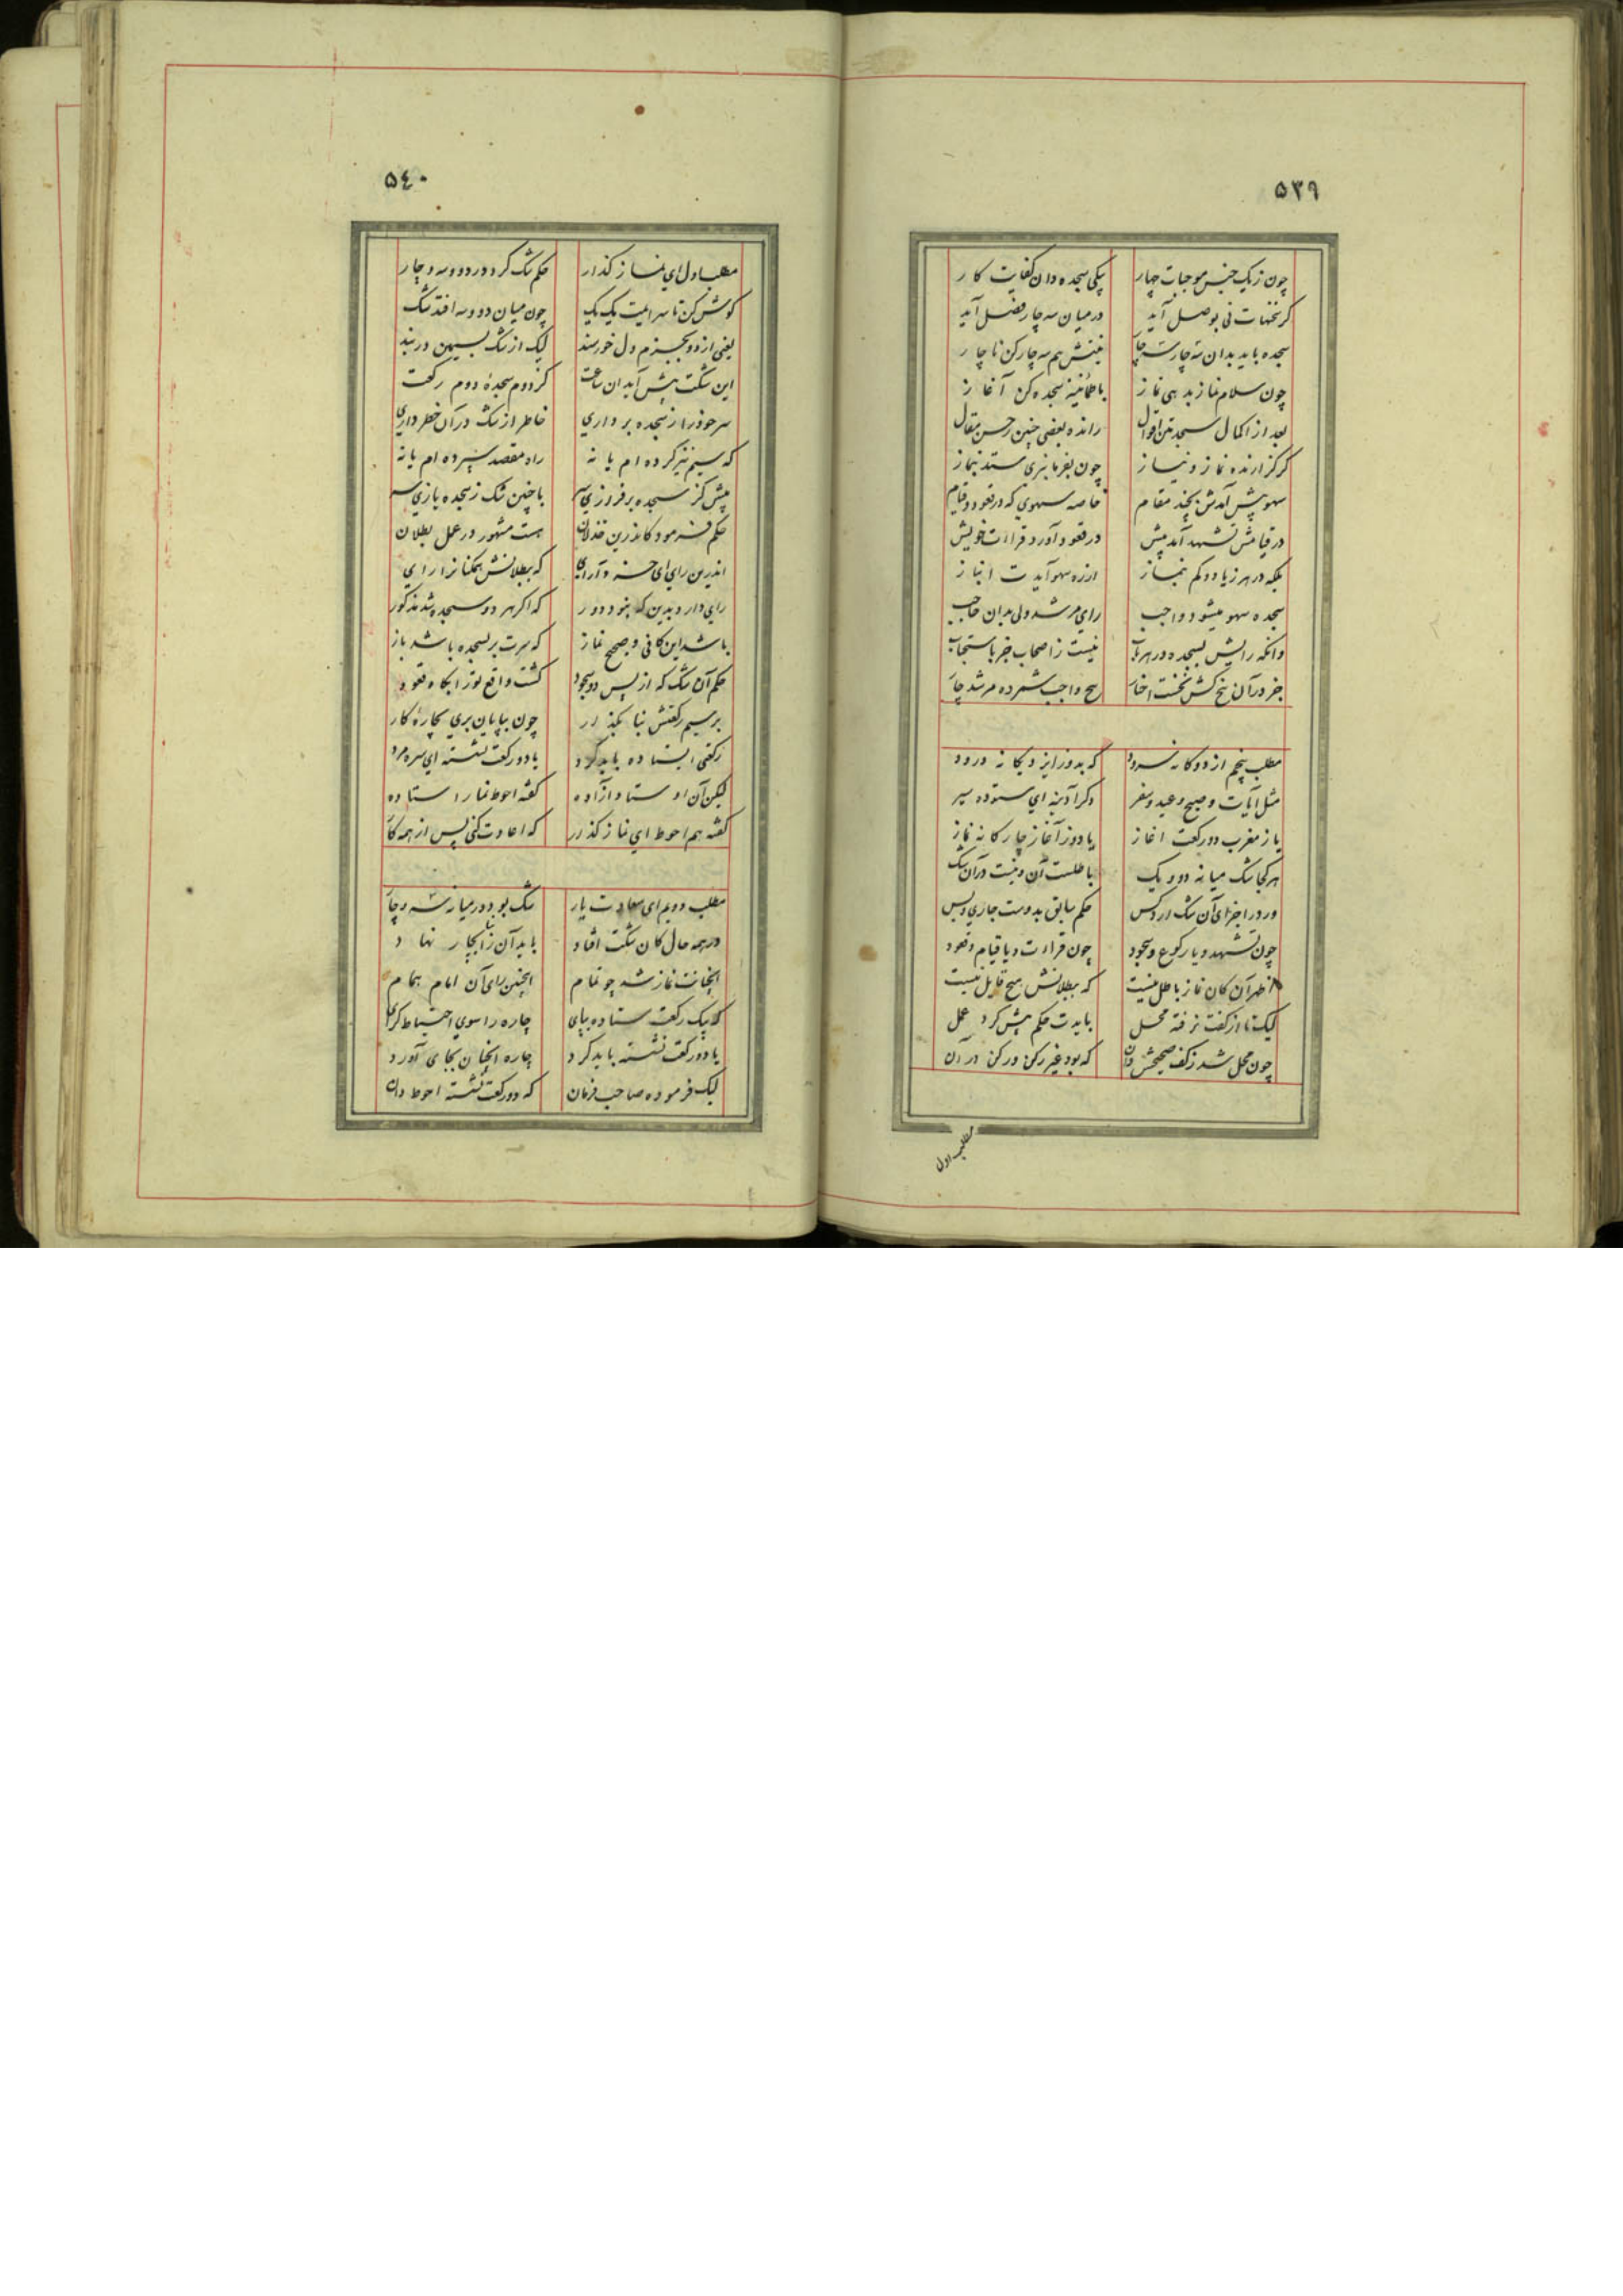 ٥٣٩
چون زیک جنس موجبات چهار یکی سجده دان کفایت کار
کر نخنهات نی بوصل آید در میان سه چار فصل آید
سجده باید بدان سه چار سه چار نیتش هم سه چار کن ناچار
چون سلام نماز بدهی نماز باطمأنینه سجده کن آغاز
بعد از اکمال سجدتین اقوال رانده بعضی چنین ز حسن مقال
کر گزارنده نماز و نیاز چون بفرمانبری ستد بنماز
سهو پیش آمدش بچند مقام خاصه سهوی که در قعود و قیام
در قیامش تشهد آمد پیش در قعود آورد قراءت خویش
بلکه در هر زیاد و کم بنماز از ره سهو آیدت انباز
سجده سهو میشود واجب رای مرشد ولی بدان حاجب
وانکه رایش بسجده در هر باب نیست ز اصحاب جز باستحباب
جز در آن پنج کش نخست اخبار هیچ واجب شمرده مرشد چار
مطلب پنجم از دوکانه سرود که بدور ایزد یکانه درود
مثل آیات و صبح و عید و سفر دکر آدینه ای ستوده سیر
یا ز مغرب دو رکعت اغاز یا دوز آغاز چار کانه نماز
هر کجا شک میانه دو و یک باطلست آن و نیست در آن شک
ور در اجزای آن شک ارد کس حکم سابق بدوست جاری و بس
چون تشهد و یا رکوع و سجود چون قراءت و یا قیام و قعود
اظهر آن کان نماز باطل نیست که ببطلانش هیچ قایل نیست
لیک تا از کفت نرفته محل بایدت حکم پیش کرد عمل
چون محل شد ز کف صحیحش دان که بود غیر رکن و رکن در آن
مطلب اول
٥٤٠
مطلب اول ای نماز کذار حکم شک کرد در دو و سه و چار
کوش کن تا سرایمت یک یک چون میان دو و سه افتد شک
یعنی از دو بجزم دل خورسند لیک از شک بسیمین در بند
این شکت پیش آید ان ساعت کز دوم سجدهٔ دوم رکعت
سر خود را ز سجده برداری خاطر از شک در آن خطر داری
که سیم نیز کرده ام یا نه راه مقصد سپرده ام یا نه
پیش کز سجده بر فرازی سر با چنین شک ز سجده بازی سر
حکم فرمود کاندرین خذلان هست مشهور در عمل بطلان
اندرین رای ای خسته و آرای که ببطلانش همکنانرا رای
رای دارد بدین که بنود دور که اکر هر دو سجده شد مذکور
باشد این کافی و صحیح نماز که سرت بر سجده باشد باز
حکم آن شک که از پس دو سجود کشت واقع تو را بکاه قعود
بر سیم رکعتش بنا بکذار چون بپایان بری بچارهٔ کار
رکعتی ایستاده باید کرد یا دو رکعت نشسته ای سره مرد
لیکن آن اوستاد آزاده کفته احوط نما را ستاده
کفته هم احوط ای نماز کذار که اعادت کنی پس از همه کار
مطلب دویم ای سعادت یار شک بود در میانه سه و چار
در همه حال کان شکت افتاد باید آن را بنا بچار نهاد
انچنانت نماز شد چو تمام اینچنین رای آن امام همام
که یک رکعت ستاده بپای چاره را سوی احتیاط کرای
یا دو رکعت نشسته باید کرد چاره انچنان بجای آورد
لیک فرموده صاحب فرمان که دو رکعت نشسته احوط دان